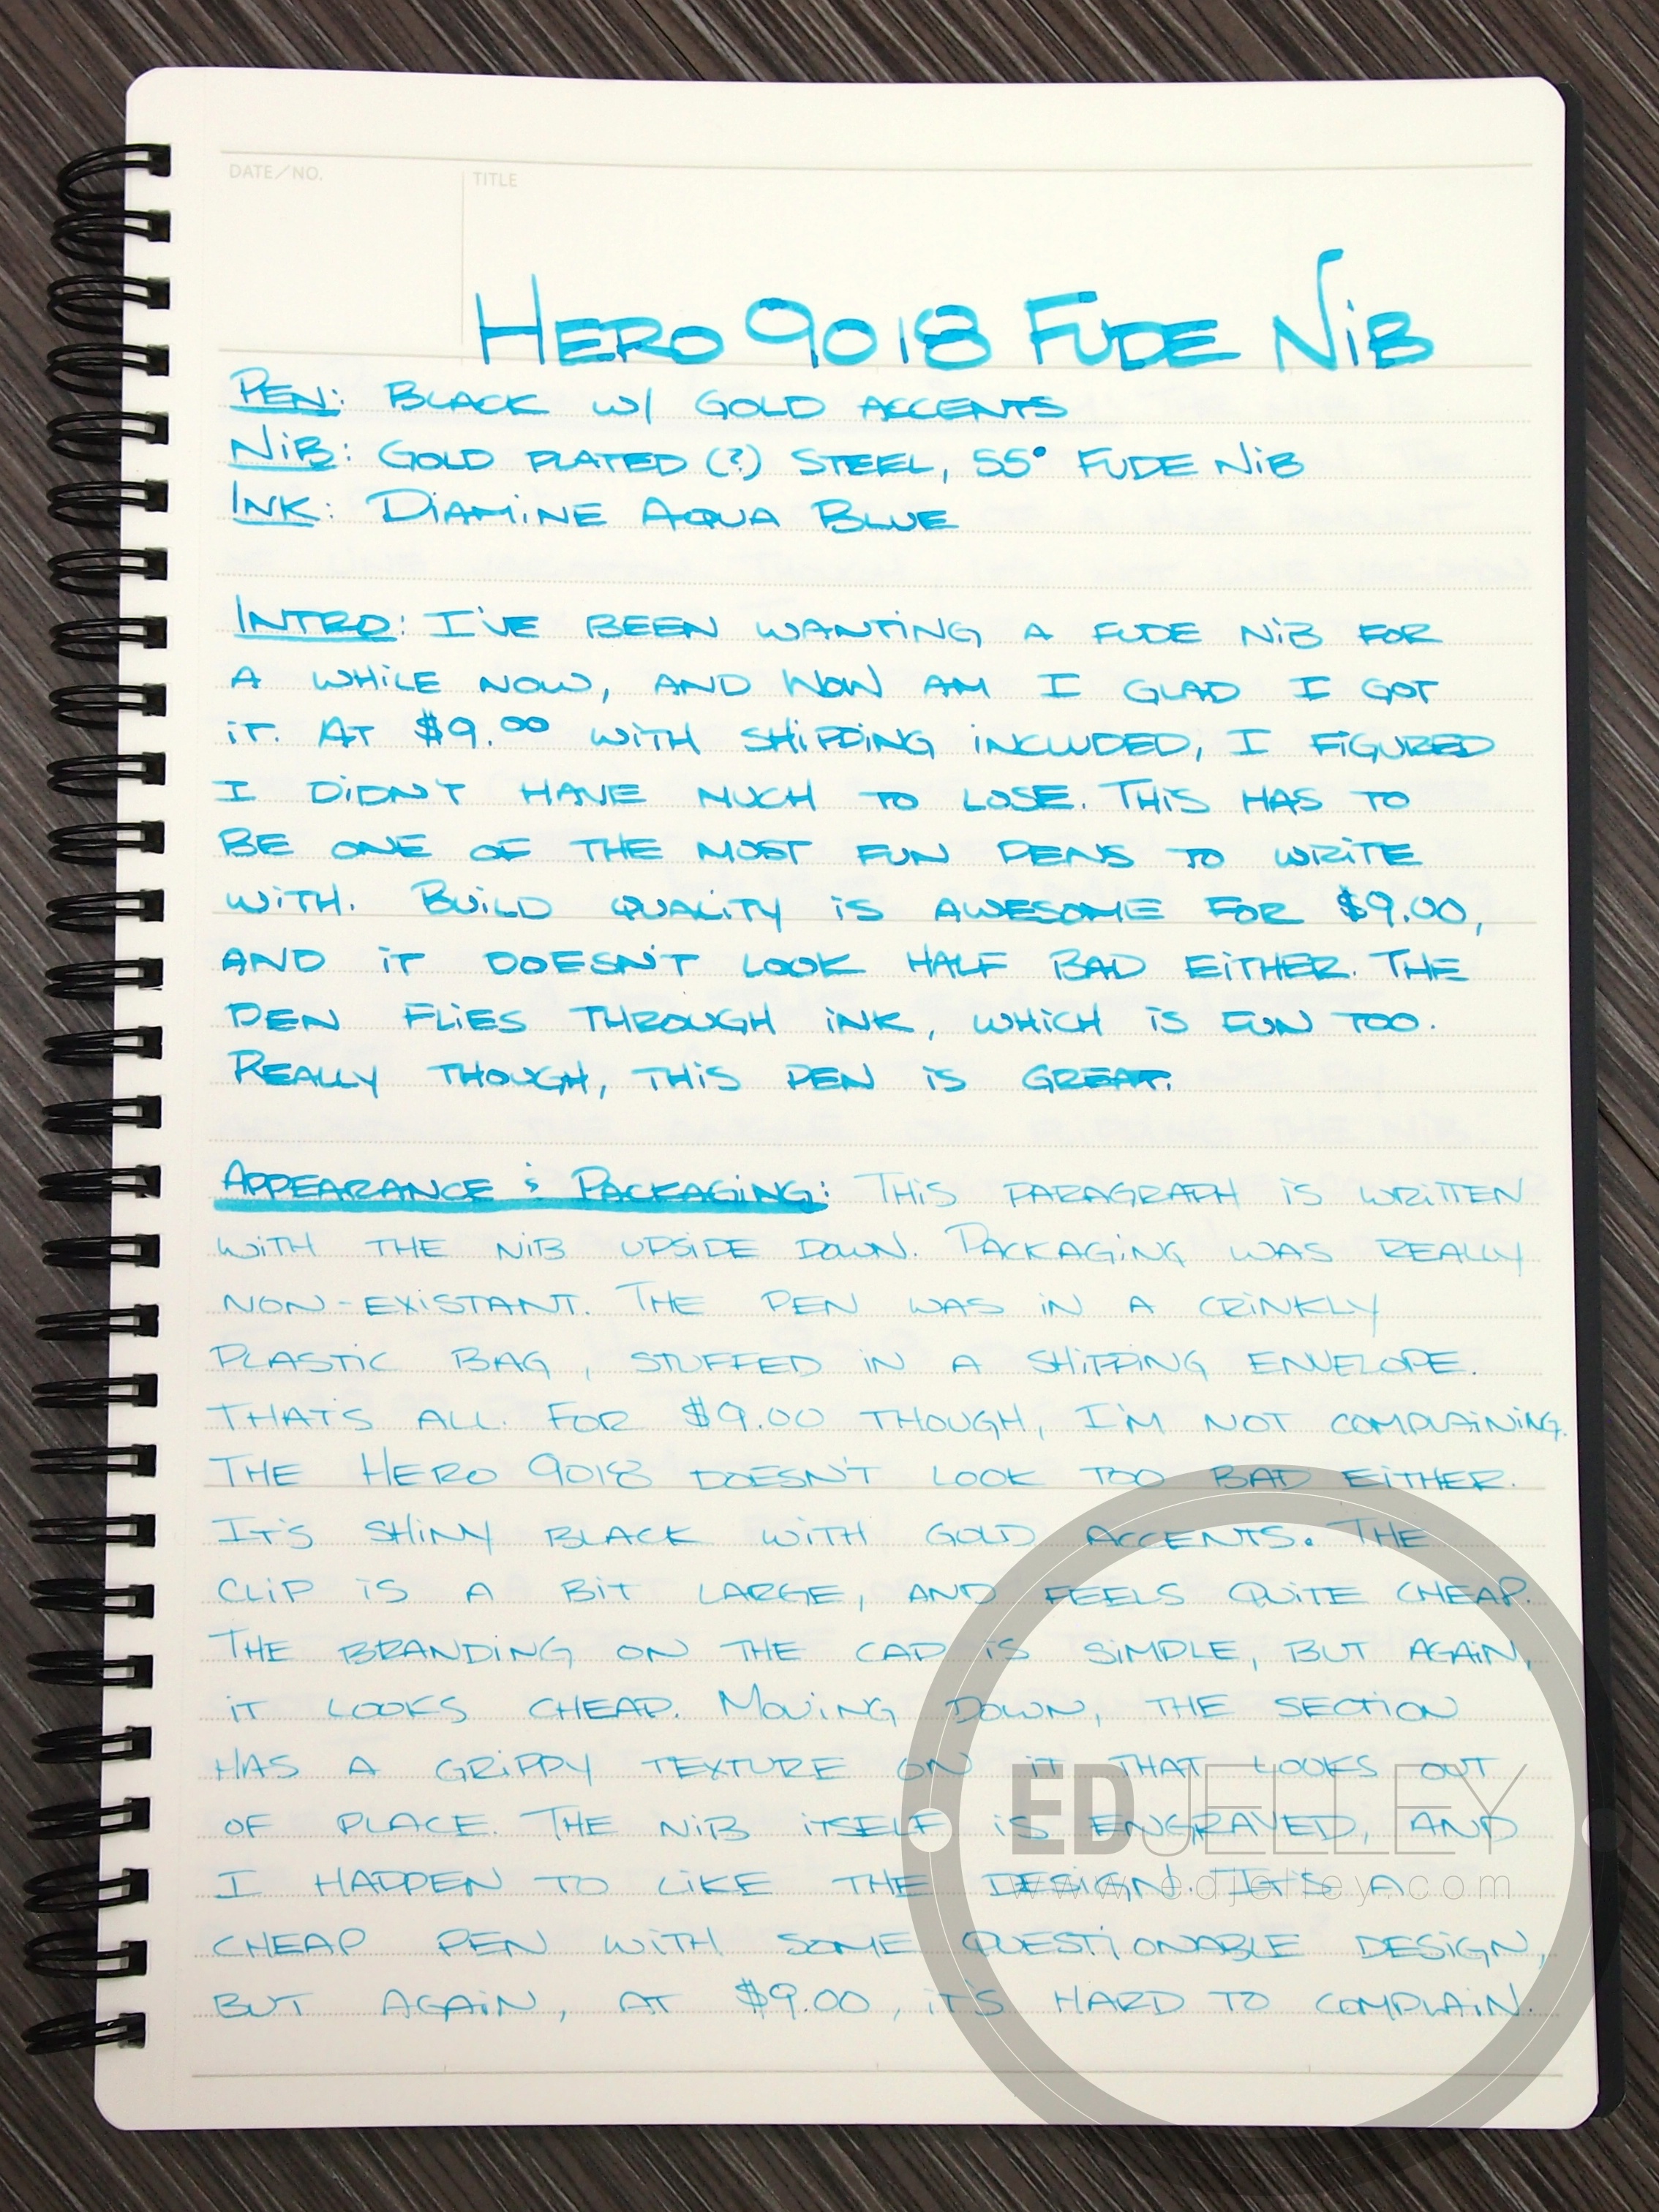 DATE/NO.
TITLE
HERO 9018 FUDE NiB
PEN: BLACK W/ GOLD ACCENTS
NiB: GOLD PLATED (?) STEEL, 55° FUDE NiB
INK: DIAMINE AQUA BLUE
INTRO: I'VE BEEN WANTING A FUDE NiB FOR
A WHILE NOW, AND WOW AM I GLAD I GOT
iT. AT $9.00 WITH SHIPPING INCLUDED, I FIGURED
I DIDN'T HAVE MUCH TO LOSE. THIS HAS TO
BE ONE OF THE MOST FUN PENS TO WRITE
WITH. BUILD QUALITY IS AWESOME FOR $9.00,
AND IT DOESN'T LOOK HALF BAD EITHER. THE
PEN FLIES THROUGH INK, WHICH IS FUN TOO.
REALLY THOUGH, THIS PEN IS GREAT.
APPEARANCE & PACKAGING: THIS PARAGRAPH IS WRITTEN
WITH THE NIB UPSIDE DOWN. PACKAGING WAS REALLY
NON-EXISTANT. THE PEN WAS IN A CRINKLY
PLASTIC BAG, STUFFED IN A SHIPPING ENVELOPE.
THAT'S ALL. FOR $9.00 THOUGH, I'M NOT COMPLAINING.
THE HERO 9018 DOESN'T LOOK TOO BAD EITHER.
IT'S SHINY BLACK WITH GOLD ACCENTS. THE
CLIP IS A BIT LARGE, AND FEELS QUITE CHEAP.
THE BRANDING ON THE CAP IS SIMPLE, BUT AGAIN,
IT LOOKS CHEAP. MOVING DOWN, THE SECTION
HAS A GRIPPY TEXTURE ON IT THAT LOOKS OUT
OF PLACE. THE NIB ITSELF IS ENGRAVED, AND
I HAPPEN TO LIKE THE DESIGN! IT'S A
CHEAP PEN WITH SOME QUESTIONABLE DESIGN,
BUT AGAIN, AT $9.00, IT'S HARD TO COMPLAIN.
EDJELLEY
www.edjelley.com